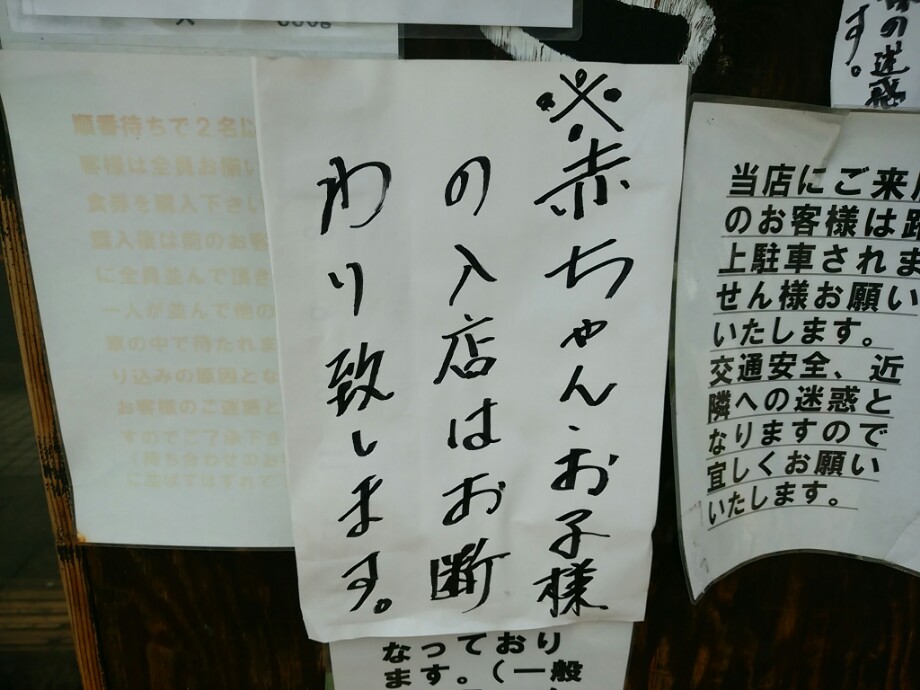 ※赤ちゃん・お子様
の入店はお断
わり致します。
当店にご来
のお客様は路
上駐車されま
せん様お願い
いたします。
交通安全、近
隣への迷惑と
なりますので
宜しくお願い
いたします。
順番待ちで2名以
客様は全員お願い
食券を購入下さい
購入後は前のお客
に全員並んで頂き
一人が並んで他の
車の中で待たれま
り込みの原因とな
お客様のご迷惑と
すのでご了承下さ
なっており
ます。(一般
の迷惑
す。